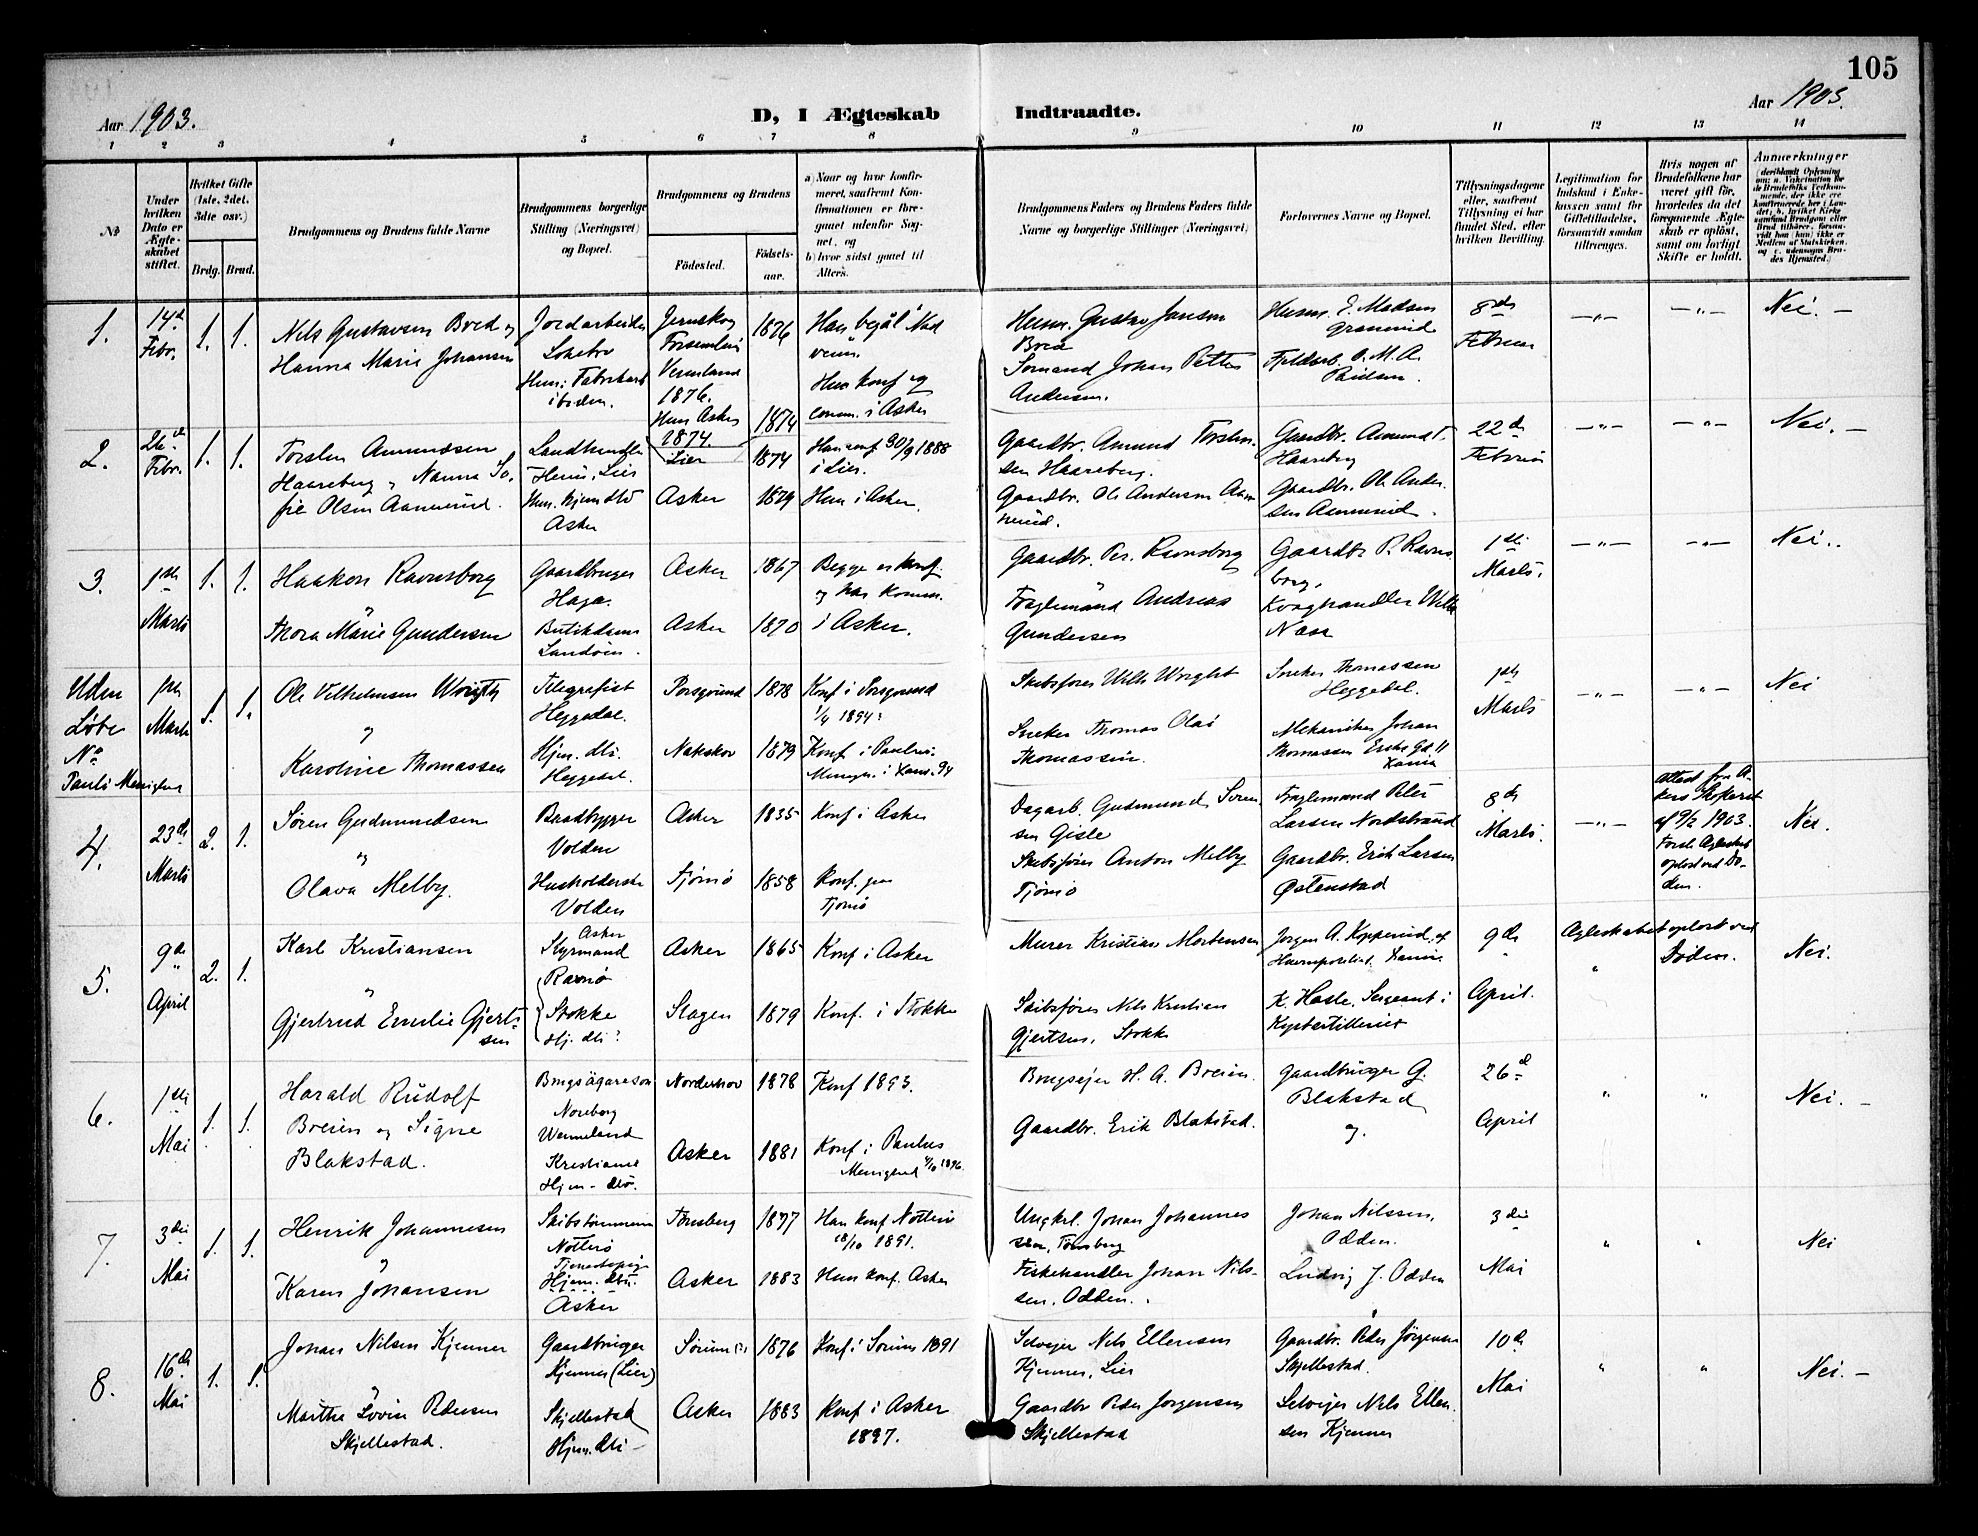 105
Aar 1903.
D, I Ægteskab Indtraadte.
Aar 1903.
1 2 3 4 5 6 7 8 9 10 11 12 13 14
№
Under hvilken Dato er Ægteskabet stiftet.
Hvilket Gifte (1ste, 2det, 3die osv.)
Brdg. Brud.
Brudgommens og Brudens fulde Navne
Brudgommens borgerlige Stilling (Næringsvei) og Bopæl.
Brudgommens og Brudens
Fødested. Fødselsaar.
a) Naar og hvor konfirmeret, saafremt Konfirmationen er foregaaet udenfor Sognet, og
b) hvor sidst gaaet til Alters.
Brudgommens Faders og Brudens Faders fulde Navne og borgerlige Stillinger (Næringsvei)
Forlovernes Navne og Bopæl.
Tillysningsdagene eller, saafremt Tillysning ei har fundet Sted, efter hvilken Bevilling.
Legitimation for Indskud i Enkekassen samt for Giftetilladelse, forsaavidt saadan tiltrænges.
Hvis nogen af Brudefolkene har været gift før, hvorledes da det foregaaende Ægteskab er opløst, samt om lovligt Skifte er holdt.
Anmerkninger
1.
14d Febr.
1. 1.
Nils Gustavsen Bred og
Hanna Marie Johansen
Jordarbeider
Hun: Fabrikarb
ibidem.
Vermland
1876.
Hun Asker
1874.
1876
1874
Hun konf og
comm. i Asker
Husm. Gustav Jansen
Johan Petter
Andersen.
Husm. E. Madsen
8de
Februar
—„— —„— Nei. —
2.
26d Febr.
1. 1.
Torsten Amundsen
Haareberg og Nanna So.
fie Olsen Aamerud.
Landhandler
Heni, Lier
Hun. hjemdtr
Asker
Lier 1874
Asker 1879
Han conf 30/9 1888
i Lier.
Hun i Asker.
Gaardbr. Amund Torsten
sen Haareberg.
Gaardbr. Ole Andersen Aam
erud.
Gaardbr. Amund T.
Haareberg
Gaardbr. Ole Ander.
sen Aamerud.
22de
Februar
—„— —„— Nei. —
3.
1ste
Marts
1. 1.
Haakon Ravnsborg
og
Thora Marie Gundersen
Gaardbruger
Haga.
Asker 1867
Asker 1870
Begge er konf.
og har komm.
i Asker.
Gaardbr. Per. Ravnsborg
Fraglemand Andreas
Gundersen
Gaardbr P. Ravns
borg,
Kvæghandler Wilh
Næss
1ste
Marts.
—„— —„— Nei..
Uden
Løbe
No
Pauls Menighed
1ste
Marts
1. 1.
Ole Vilhelmsen Wright
og
Karoline Thomassen
Telegrafist
Heggedal.
Hjem. dtr.
Heggedal.
Porsgrund 1878
Nakskov 1879
Konf i Porsgrund
1/4 1894.
Konf. i Paulus.
Menigh. i Xania. 94
Skibsfører Wilh Wright
Snekker Thomas Olai
Thomassen.
Snekker Thomassen
Heggedal.
Mekaniker Johan
Thomassen
Xania
1ste
Marts
—„— —„— Nei
4.
23de
Marts
2. 1.
Søren Gudmundsen
og
Olava Melby.
Baadbygger
Volden
Husholderske
Volden
Asker 1835
Tjømø 1858
Konf i Asker
Konf. paa
Tjømø
Dagarb. Gudmund Søren
sen Gisle
Skibsfører Anton Melby
Tjømø
Fraglemand Peter
Larsen Nordstrand
Gaardbr. Erik Larsen
Østenstad
8de
Marts.
—„—
attest fra A-
kers Skifteret
af 9/2 1903.
Første Ægteskab
opløst ved Dø-
den.
Nei.
5.
9de
April
2. 1.
Karl Kristiansen
„
Gjertrud Emelie Gjert-
sen
Asker
Styrmand
Ravnø
Stokke
Hj. dtr.
Asker 1865
Slagen 1879
Konf i Asker
Konf. i Stokke
Murer Kristian Mortensen
Skibsfører Nils Kristian
Gjertsen, Stokke
Jørgen A. Kopperud, af
K. Hasle. Sergeant i
Kystartilleriet
9de
April.
Ægteskabet opløst ved
Døden.
„
Nei.
6.
1ste
Mai
1. 1.
Harald Rudolf
Breien og Signe
Blakstad.
Brugsejereson
Noreborg
Wermeland
Kristiania
Hjem. dtr.
Norderhov 1878
Asker 1881
Konf 1893.
Konf i Paulus
Menighed 4/10 1896
Brugsejer H. A. Breien.
Gaardbr. Erik Blakstad.
Gaardbruger G.
Blakstad
og.
26d
April
„ „ Nei. —
7.
3die
Mai
1. 1.
Henrik Johannesen
og
Karen Johansen
Skibstømmerm
Nøtterø
Tjenestepige
Hjem. dtr.
Asker
Tønsberg 1877
Asker 1883
Han konf. Nøtterø
18/10 1891.
Hun konf. Asker
Ungkrl. Johan Johannes
sen, Tønsberg
Fiskehandler Johan Nils-
sen. Odden.
Johan Nilssen,
Odden.
Ludvig J. Odden
3die
Mai
„ „ Nei
8.
16de
Mai
1. 1.
Johan Nilsen Kjenner
og
Martha Lovise Pedersen
Skjellestad.
Gaardbruger
Kjenner (Lier)
Skjellestad
Hjem. dtr
Sørum (?) 1876
Asker 1883
Konf i Sørum 1891
Konf i Asker
1897.
Selvejer Nils Ellensen
Kjenner, Lier
Gaardbr Peder Jørgensen
Skjellestad
Gaardbr. Peder Jørgensen
Skjellestad.
Selvejer Nils Ellen.
sen Kjenner
10de
Mai
„ „ Nei. —